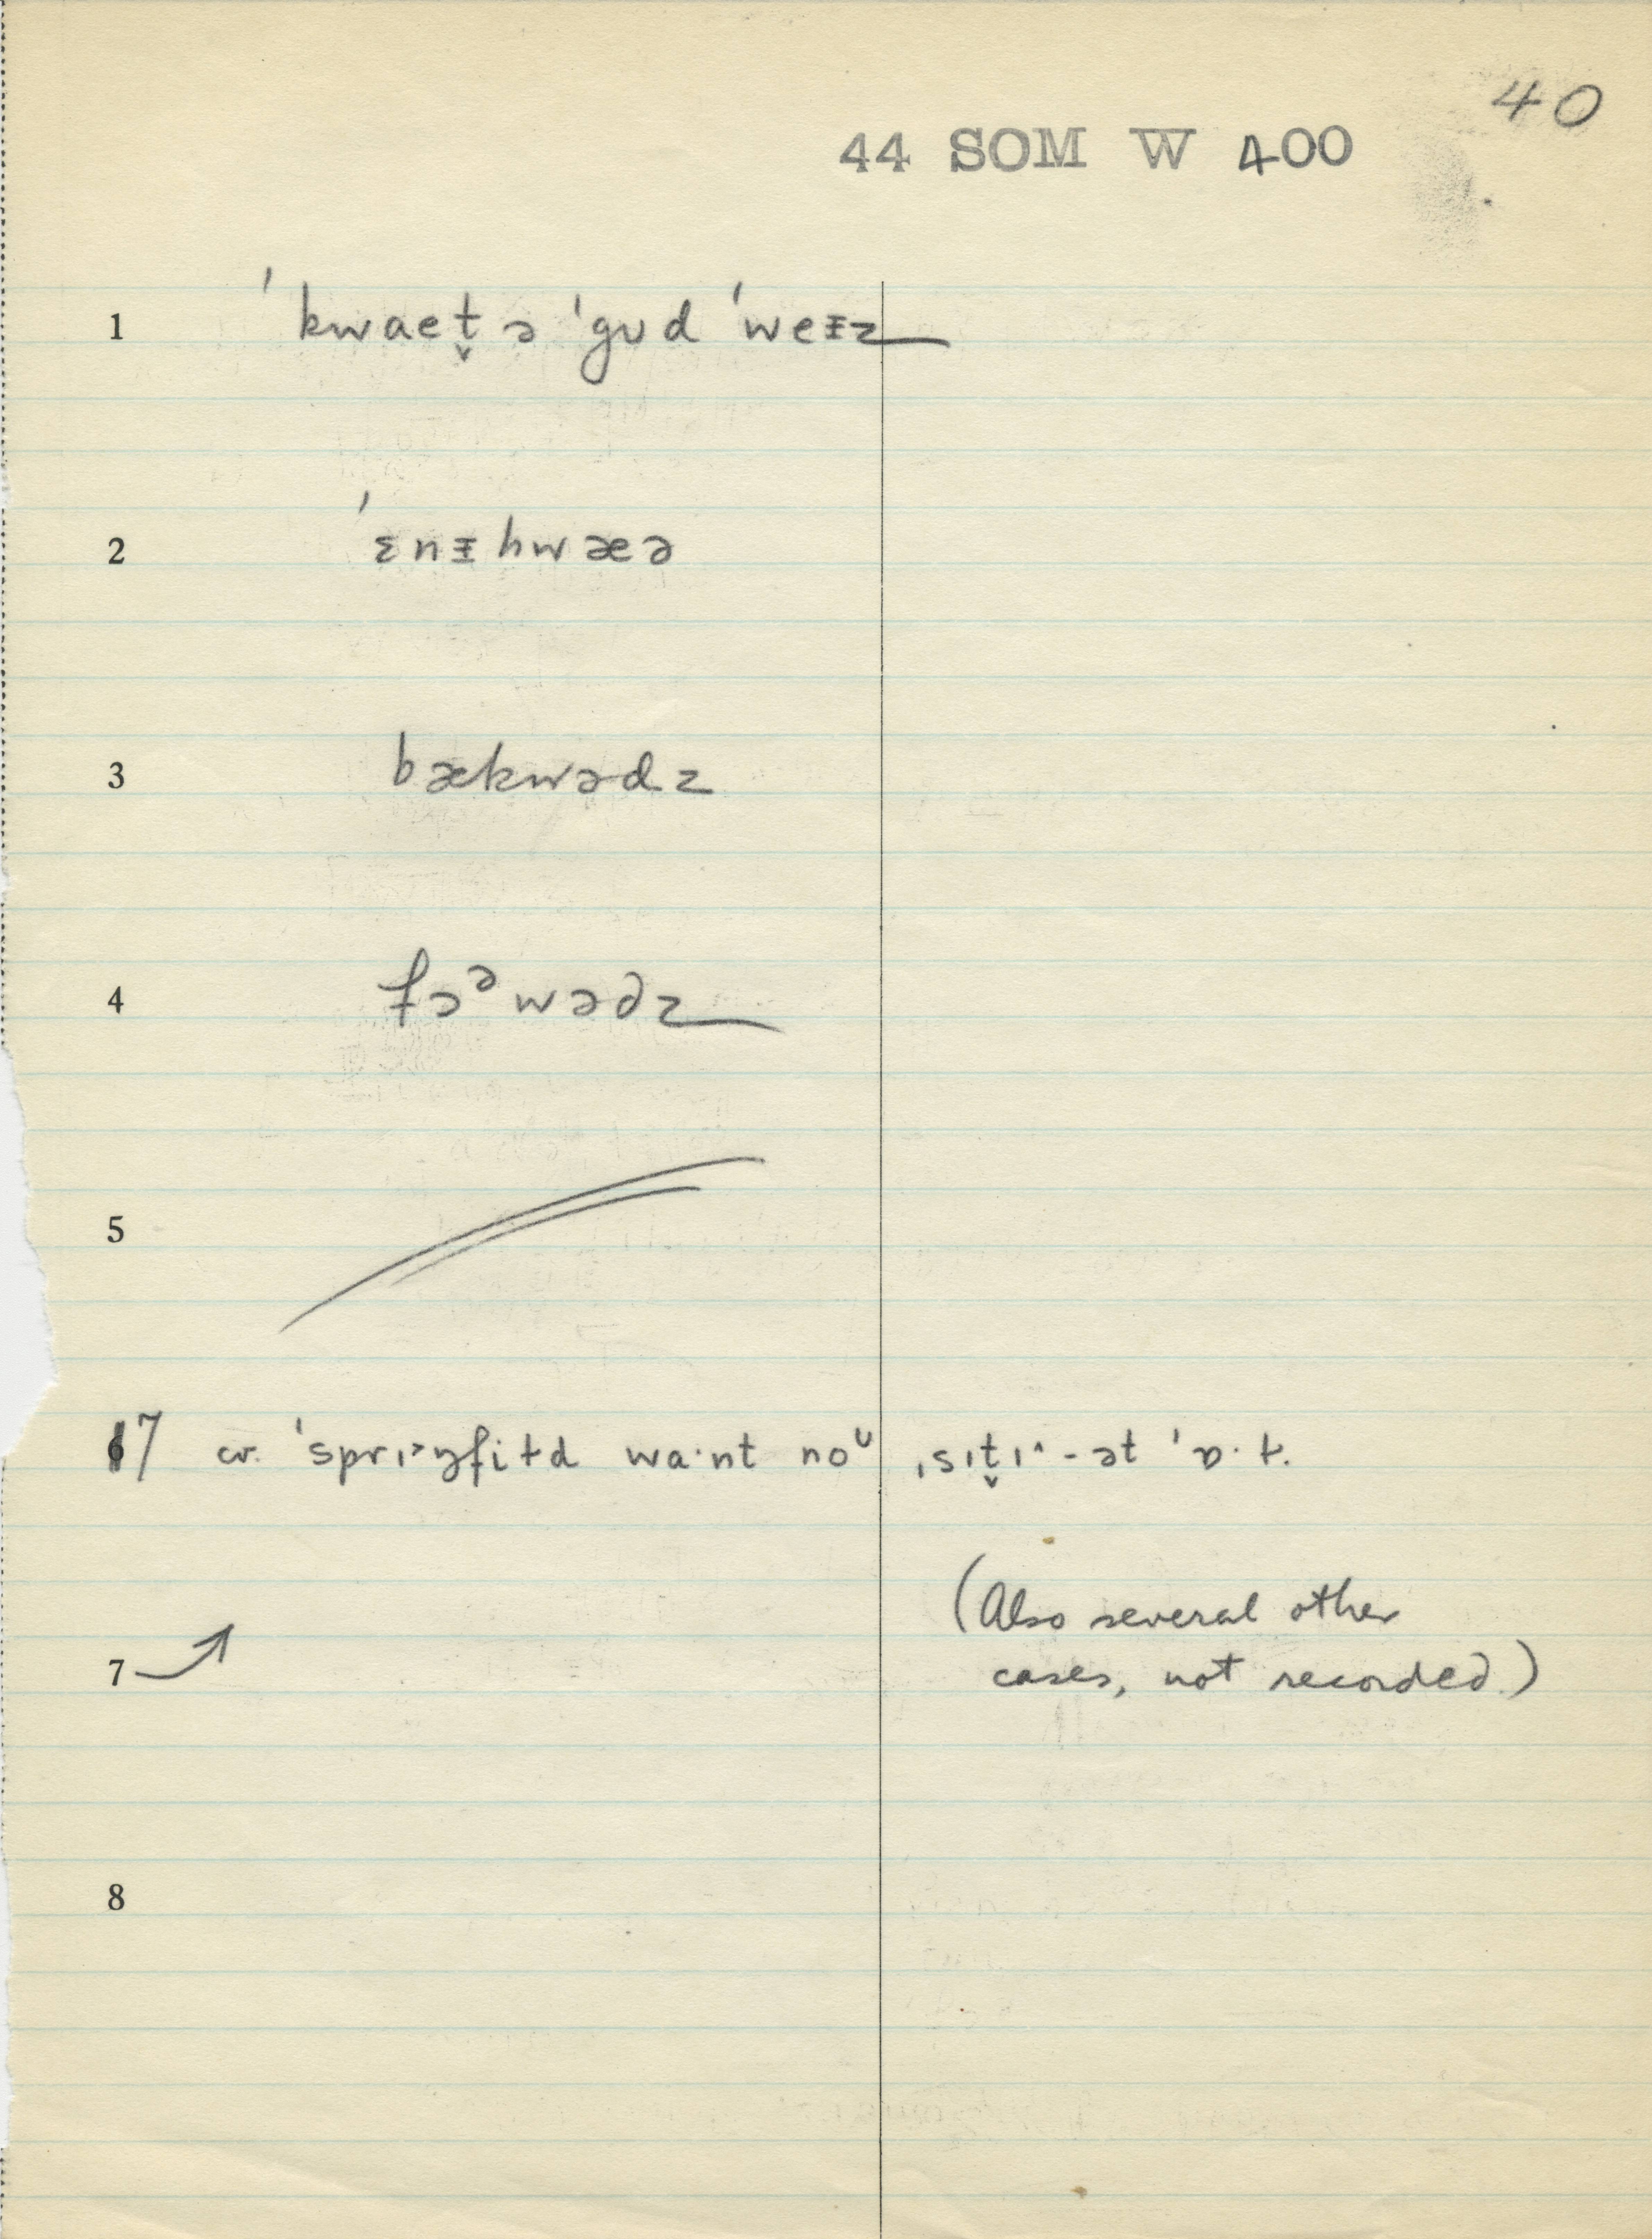 40
44 SOM W 400
1 ˈkwaet̬ ə ˈgʊd ˈweᵻz
2 ˈɛnᵻhwæə
3 bækwədz
4 fɔᵊwədz
5
67 cr. ˈsprɪ˃ŋfiɫd wa·nt noᶷ ˌsɪt̬ɪ˄-ət ˈɒ·ɫ.
(Also several other
7 cases, not recorded.)
8